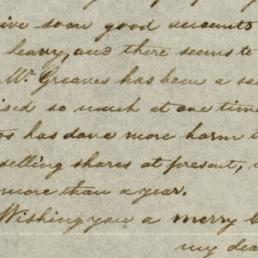 ive soon good accounts
leavy, and there seems to
Mr. Greaves has been a se
ised so much at one time
os has done more harm t
selling shares at present,
more than a year.
Wishing you a merry C
my dea